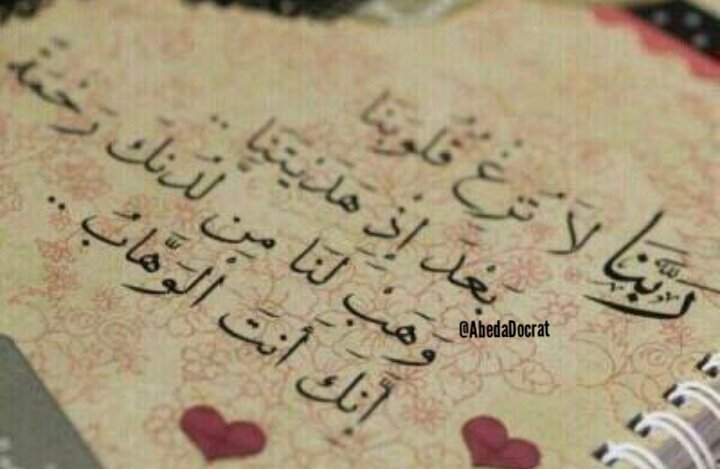 رَبَّنَا لَا تُزِغْ قُلُوبَنَا
بَعْدَ إِذْ هَدَيْتَنَا ..
وَهَبْ لَنَا مِن لَدُنكَ رَحْمَةً
إِنَّكَ أَنتَ الْوَهَّابُ ..
@AbedaDocrat